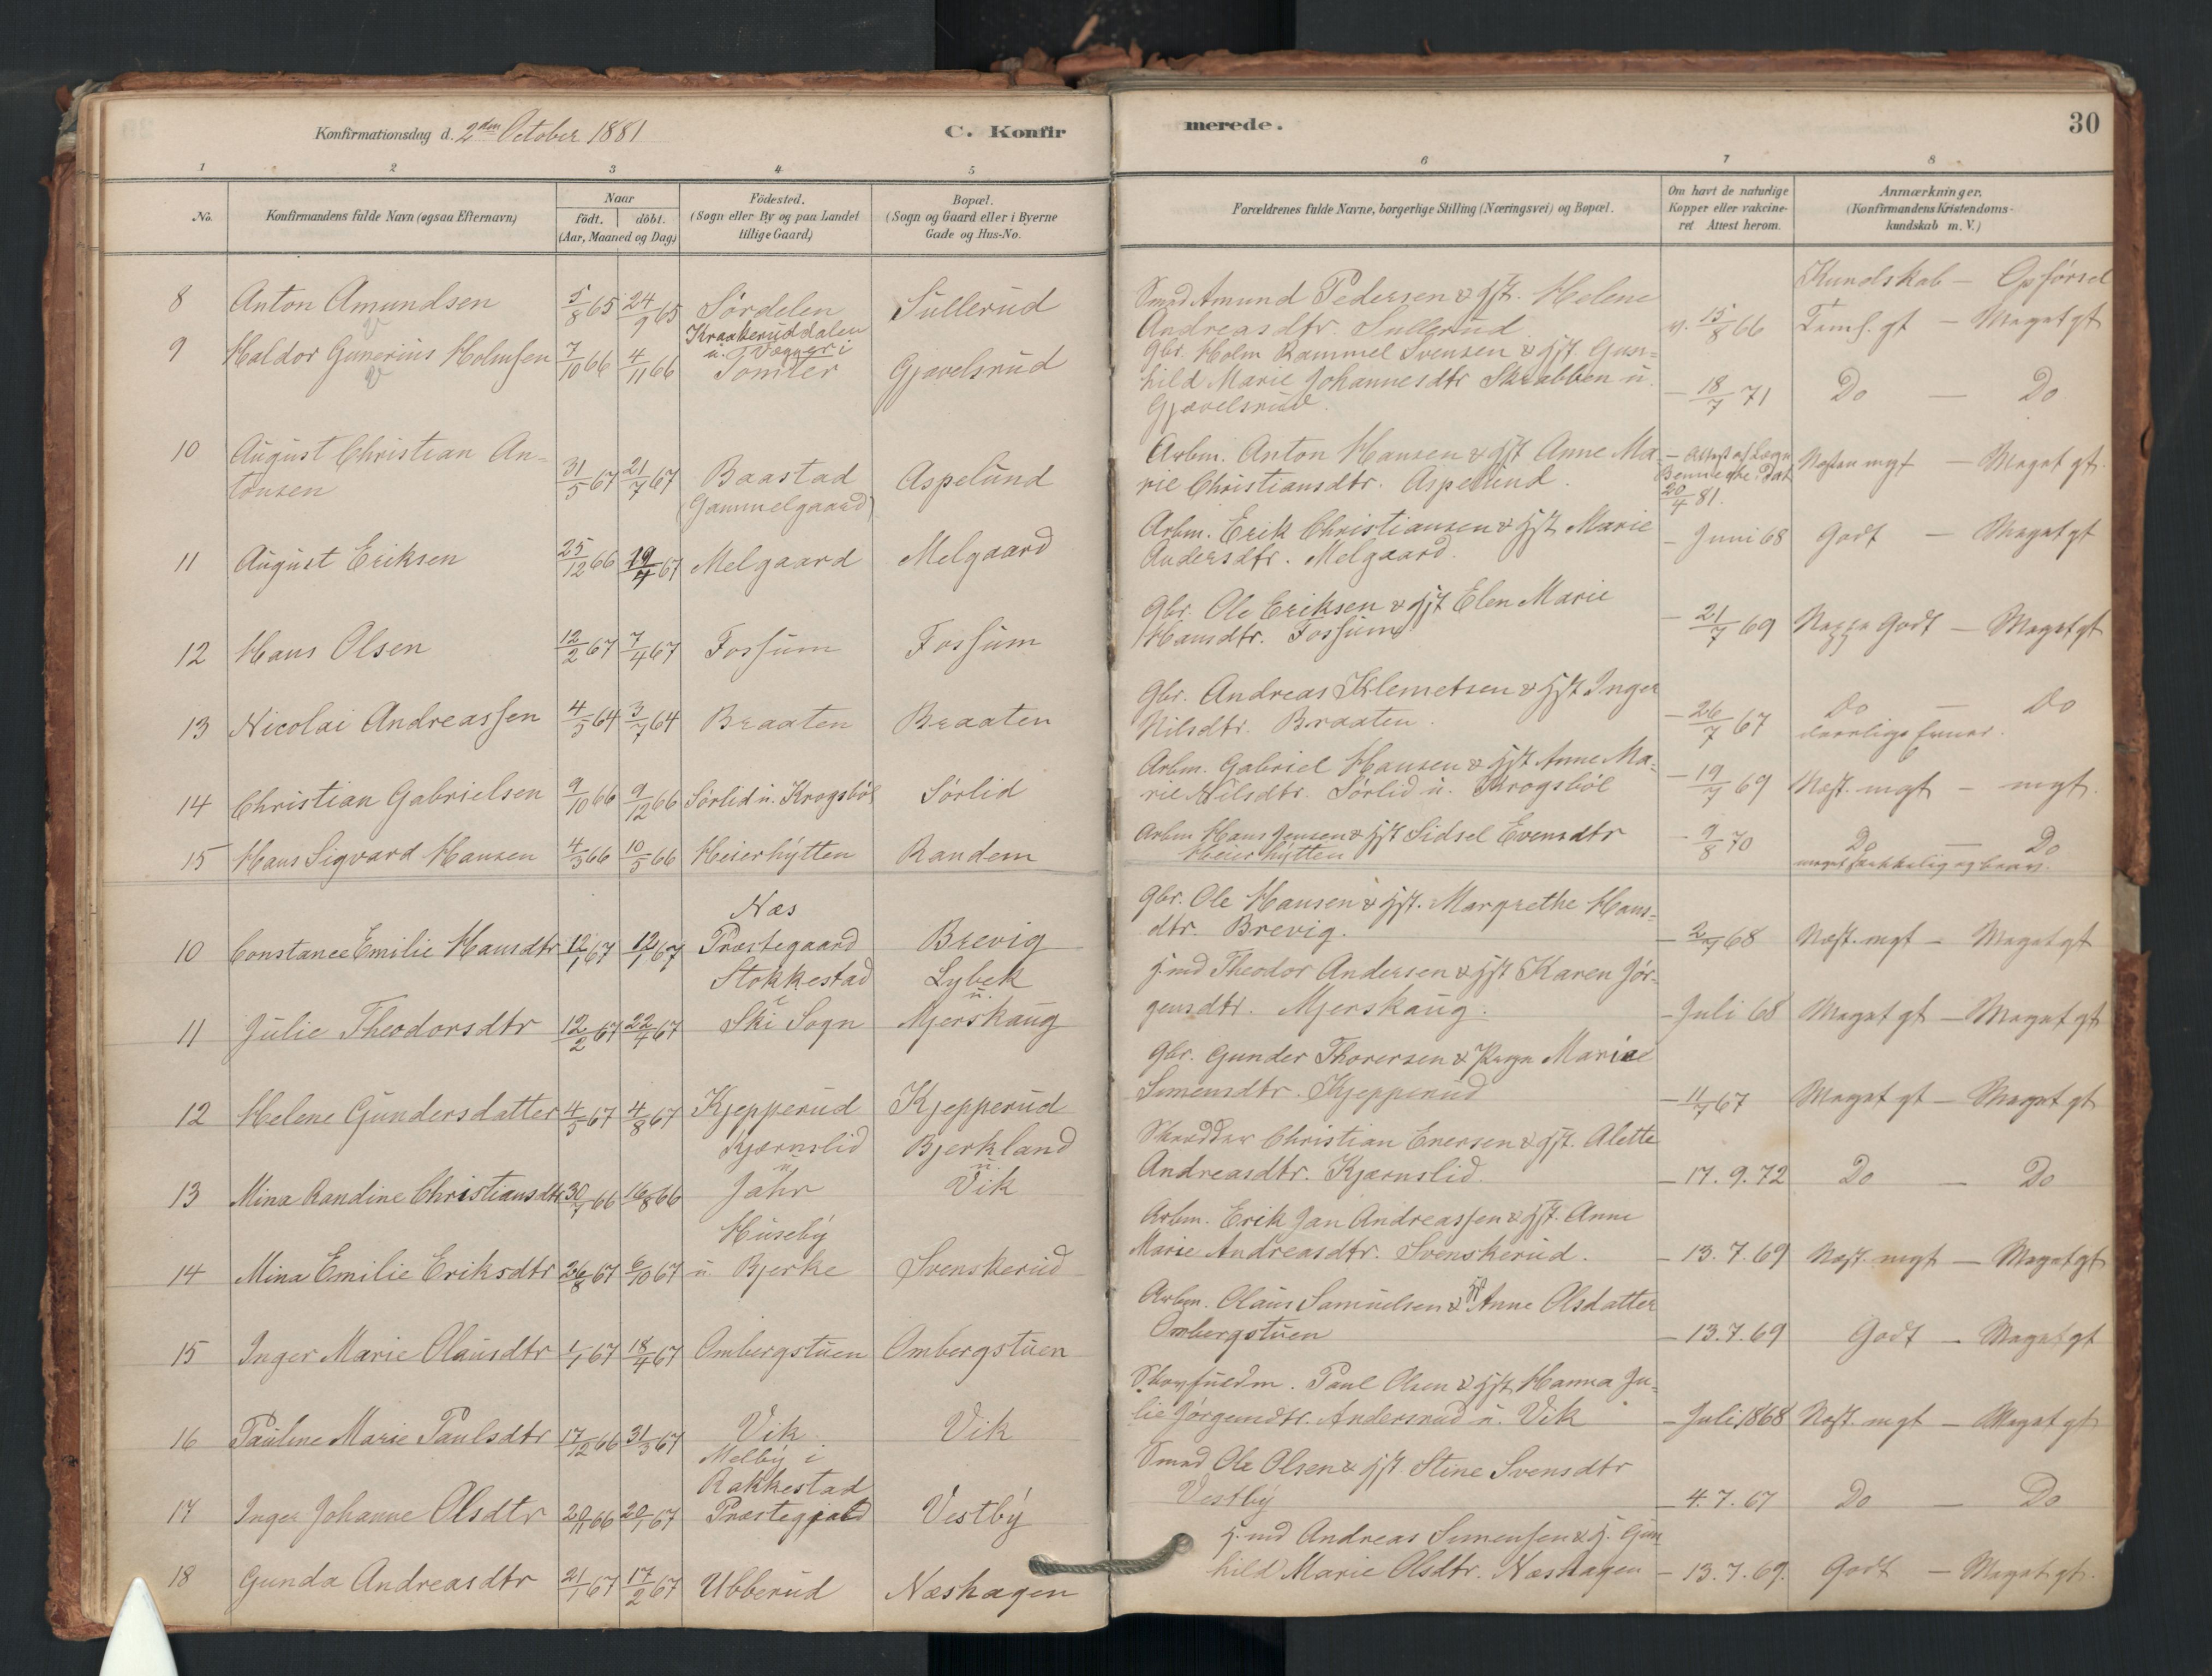 Konfirmationsdag d. 2den October 1881
C. Konfirmerede.
30
1 2 3 4 5 6 7 8
No.
Konfirmandens fulde Navn (ogsaa Efternavn)
Naar
födt. döbt.
(Aar, Maaned og Dag.)
Födested.
(Sogn eller By og paa Landet
tillige Gaard)
Bopæl.
(Sogn og Gaard eller i Byerne
Gade og Hus-No.
Forældrenes fulde Navne, borgerlige Stilling (Næringsvei) og Bopæl.
Om havt de naturlige
Kopper eller vakcine-
ret Attest herom.
Anmærkninger.
(Konfirmandens Kristendoms-
kundskab m. V.)
Kundskab — Opförsel
8 Anton Amundsen 5/8 65 24/9 65 Sördelen Sullerud
Smed Amund Pedersen & Hst. Helene
Andreasdtr. Sullerud v. 15/8 66 Temf. gt — Meget gt
9 Haldor Gunerius Holmsen 7/10 66 4/11 66 Kraakeruddalen
u. Vegger i
Tomter Gjævelsrud
Gbr. Holm Rammel Svensen & Hst. Gun-
hild Marie Johannesdtr Skrabben u.
Gjævelsrud. — 18/7 71 Do — Do
10 August Christian An-
tonsen 31/5 67 21/7 67 Baastad
(Gammelgaard) Aspelund
Arbm. Anton Hansen & Hst Anne Ma-
rie Christiansdtr. Aspelund. — Attest af Læge
20/4 81. Næsten mgt — Meget gt.
11 August Eriksen 25/12 66 19/4 67 Melgaard Melgaard
Arbm. Erik Christiansen & Hst Marie
Andersdtr. Melgaard. — Juni 68 Godt — Meget gt
12 Hans Olsen 12/2 67 7/4 67 Fossum Fossum
Gbr. Ole Eriksen & Hst Elen Marie
Hansdtr. Fossum — 21/7 69 Neppe Godt — Meget gt
13 Nicolai Andreassen 4/5 64 3/7 64 Braaten Braaten
Gbr. Andreas Klemetsen & Hst Inger
Nilsdtr. Braaten. — 26/7 67 Do — Do
daarlige Evner.
14 Christian Gabrielsen 9/10 66 9/12 66 Sörlid u. Krogsböl Sörlid
Arbm. Gabriel Hansen & Hst Anne Ma-
rie Nilsdtr. Sörlid u. Krogsböl — 19/7 69 Næst. mgt — mgt.
15 Hans Sigvard Hansen 4/3 66 10/5 66 Heierhytten Randem
Arbm Hans Jensen & Hst Sidsel Evensdtr
Heierhytten — 9/8 70 Do — Do
meget
10 Constance Emilie Hansdtr 12/1 67 12/1 67 Næs
Præstegaard Brevig
Gbr. Ole Hansen & Hst. Margrethe Hans-
dtr. Brevig. — 2/7 68 Næst. mgt — Meget gt
11 Julie Theodorsdtr 12/2 67 22/4 67 Stokkestad
i
Ski Sogn Lybek
u.
Mjerskaug
Hmd Theodor Andersen & Hst Karen Jör-
gensdtr. Mjerskaug. — Juli 68 Meget gt — Meget gt
12 Helene Gundersdatter 4/5 67 4/8 67 Kjepperud Kjepperud
Gbr. Gunder Thorersen & Marie
Simensdtr. Kjepperud — 11/7 67 Meget gt — Meget gt
13 Mina Randine Christiansdtr 30/7 66 16/8 66 Kjærnslid
u.
Jahr Bjerkland
u.
Vik
Skrædder Christian Enersen & Hst. Alette
Andreasdtr. Kjærnslid. — 17. 9. 72 Do — Do
14 Mina Emilie Eriksdtr 26/8 67 6/10 67 Huseby
u. Bjerke Svenskerud
Arbm. Erik Jan Andreassen & Hst. Anne
Marie Andreasdtr. Svenskerud. — 13. 7. 69 Næst. mgt — Meget gt
15 Inger Marie Olausdtr 1/1 67 18/4 67 Ombergstuen Ombergstuen
Arbm. Olaus Samuelsen & Hst Anne Olsdatter
Ombergstuen — 13. 7. 69 Godt — Meget gt
16 Pauline Marie Paulsdtr 17/12 66 31/3 67 Vik Vik
Paul Olsen & Hst Hanna Ju-
lie Jörgensdtr. Andersrud u. Vik — Juli 1868 Næst. mgt — Meget gt
17 Inger Johanne Olsdtr 20/11 66 20/1 67 Melby i
Rakkestad
Præstegjæld Vestby
Smed Ole Olsen & Hst Stine Svensdtr
Vestby — 4. 7. 67 Do — Do
18 Gunda Andreasdtr 21/1 67 17/2 67 Ubberud Næshagen
Hmd Andreas Simensen & H. Gun-
hild Marie Olsdtr. Næshagen — 13. 7. 69. Godt — Meget gt.